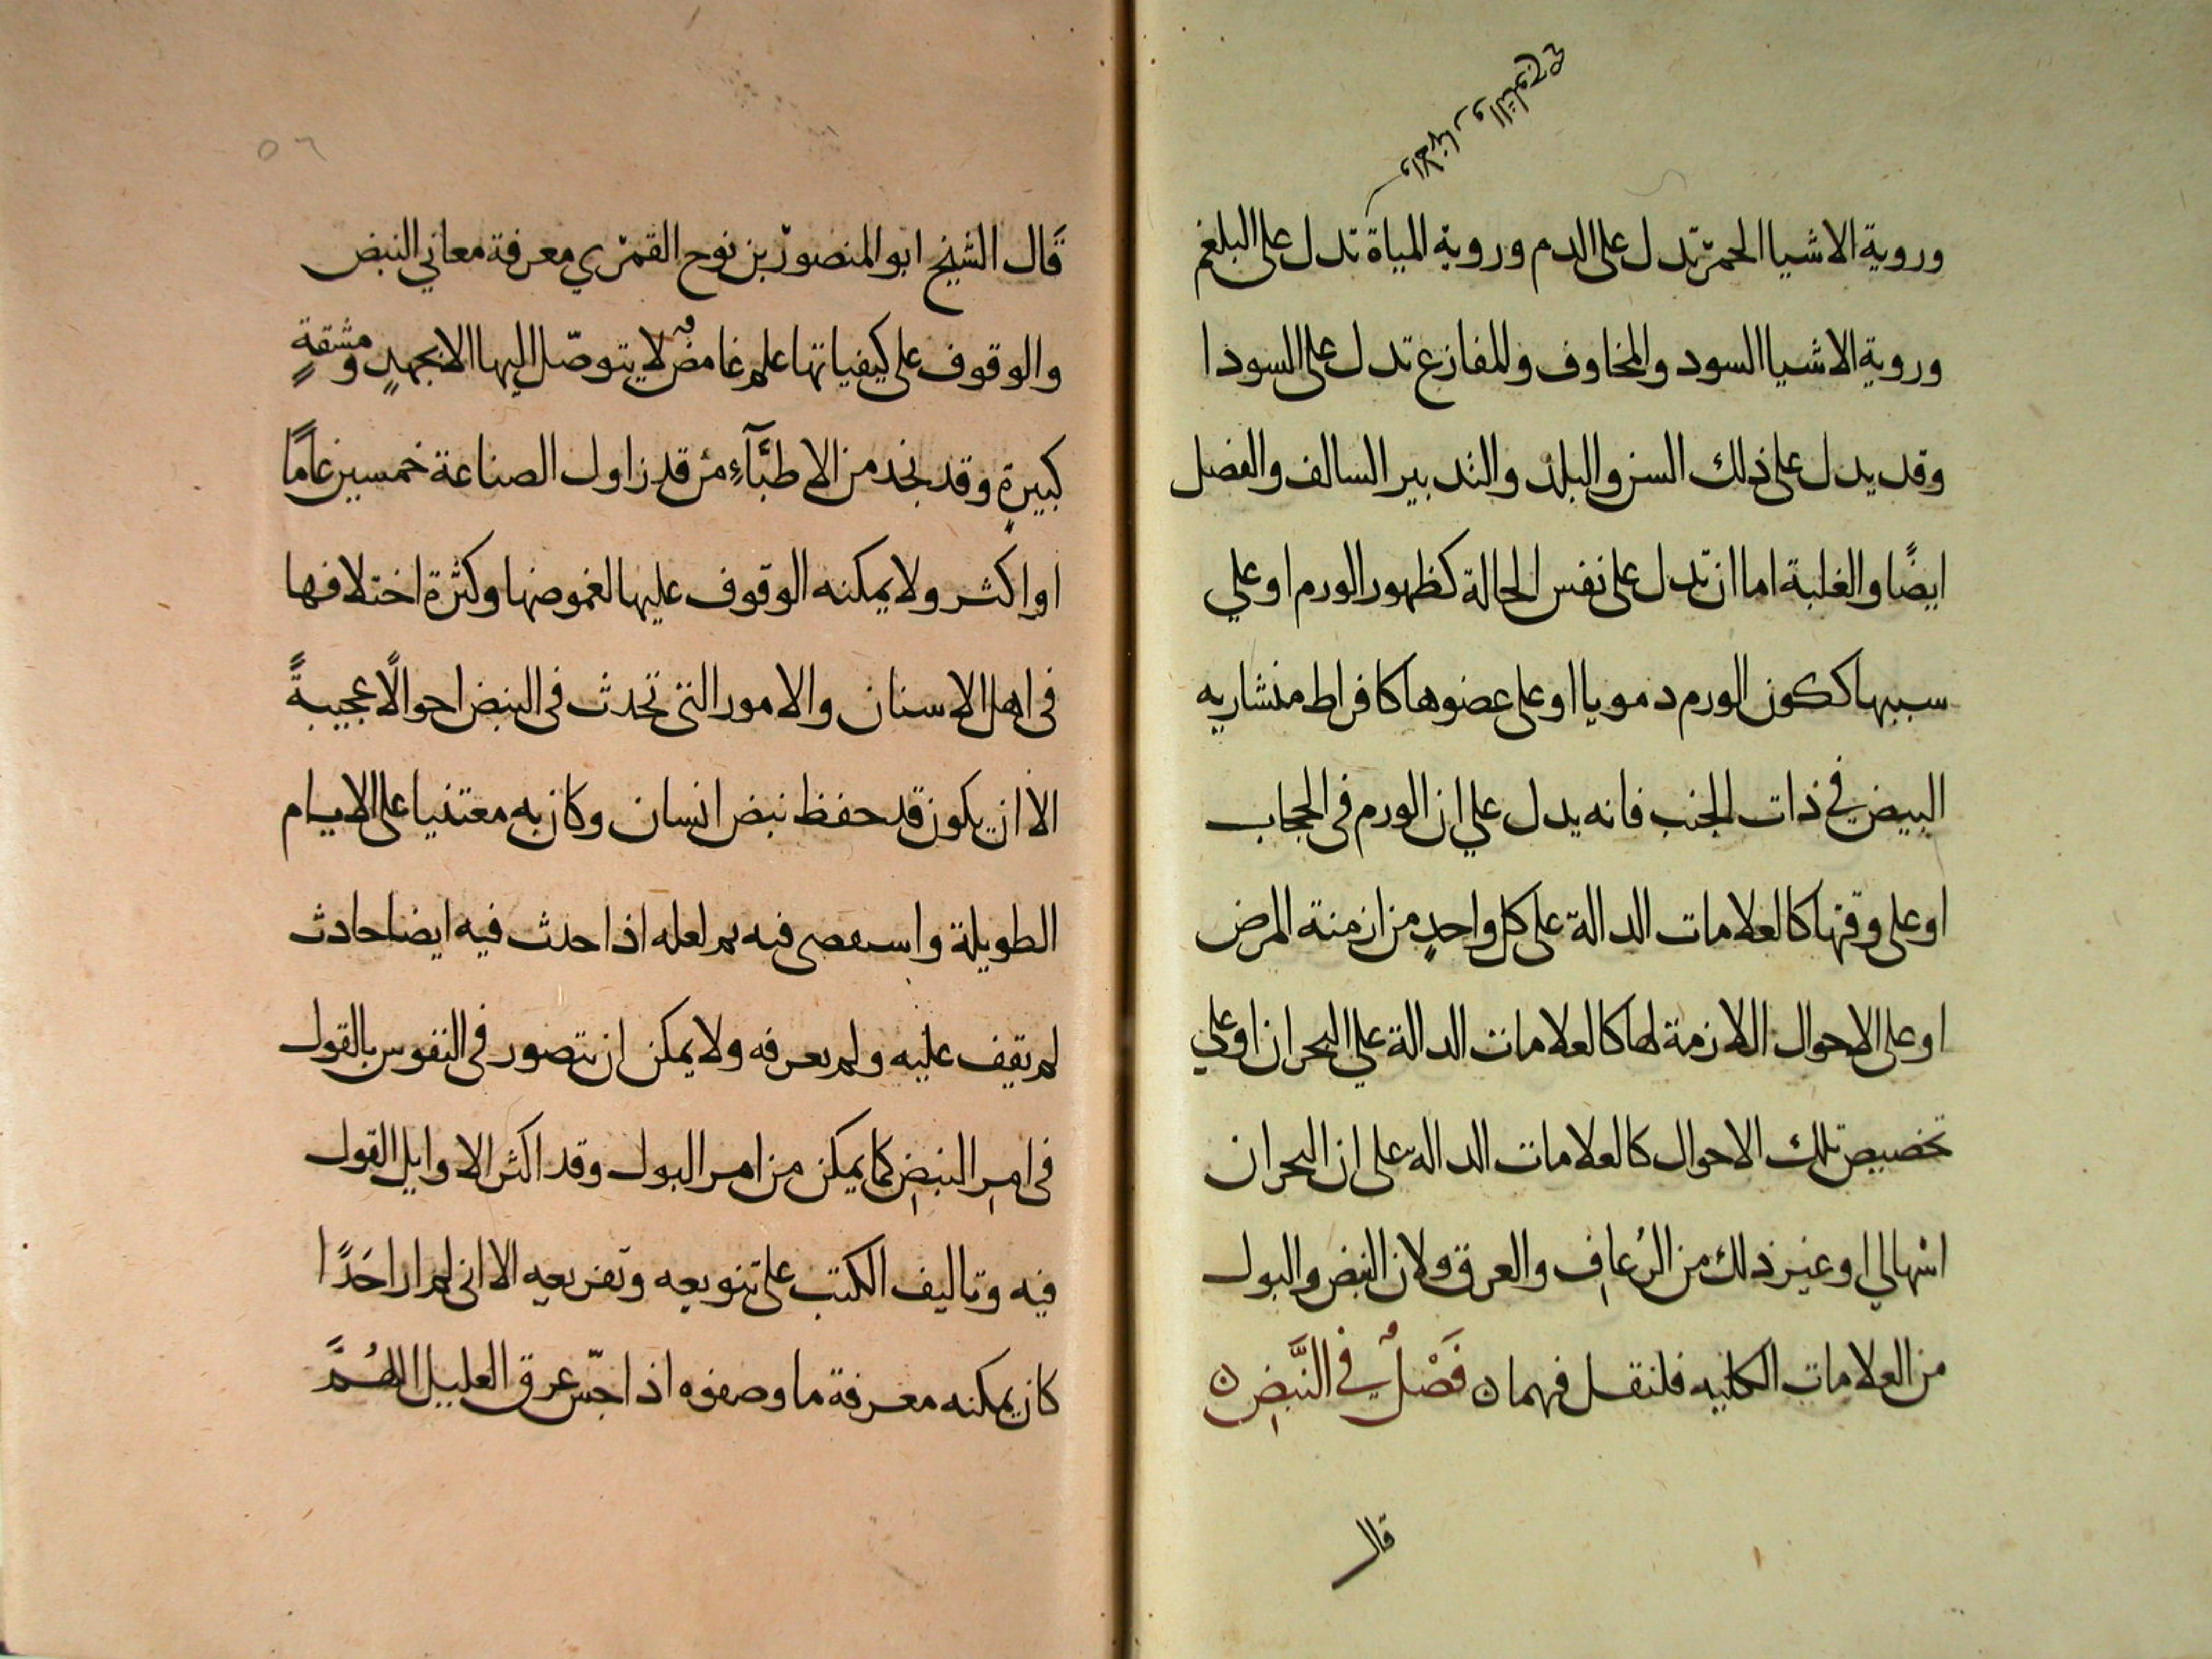 والانهار والثلوج صح
وروية الاشيا الحمر تدل على الدم وروية المياة تدل على البلغم
وروية الاشيا السود والمخاوف والمفازع تدل على السودا
وقد يدل على ذلك السن والبلد والتدبير السالف والفصل
ايضًا والغلبة اما ان تدل على نفس الحالة كظهور الورم او علي
سببها ككون الورم دمويا او على عضوها كافراط منشاريه
البيض في ذات الجنب فانه يدل علي ان الورم فى الحجاب
او على وقتها كالعلامات الدالة على كل واحدٍ من ازمنة المرض
او على الاحوال اللازمة لها كالعلامات الدالة علي البحران او علي
تخصيص تلك الاحوال كالعلامات الداله على ان البحران
اسهالي او غير ذلك من الرُعافِ والعرق ولان النبض والبول
من العلامات الكليه فلنقل فيهما ن فَصْلٌ في النَّبضِ ن
قال
٥٦
قَال الشيخ ابو المنصور بن نوح القمري معرفة معاني النبض
والوقوف على كيفياتها علم غامضٌ لا يتوصّل اليها الا بجهدٍ ومشقةٍ
كبيرةٍ وقد نجد من الاطبَّآءِ من قد زاول الصناعة خمسين عامًا
او اكثر ولا يمكنه الوقوف عليها لغموضها وكثرة اختلافها
فى اهل الاسنان والامور التى تحدث فى النبض احوالًا عجيبةً
الا ان يكون قد حفظ نبض انسان وكان به معتنيا على الايام
الطويلة واسعصى فيه بم لعله اذا حدث فيه ايضا حادث
لم يقف عليه ولم يعرفه ولا يمكن ان يتصور فى النفوس بالقول
فى امرِ النبضِ كما يمكن من امر البول وقد اكثر الاوايل القول
فيه وتاليف الكتب على تنويعه وتفريعه الا انى لم ار احَدًا
كان يمكنه معرفة ما وصفوه اذا جسّ عرق العليل